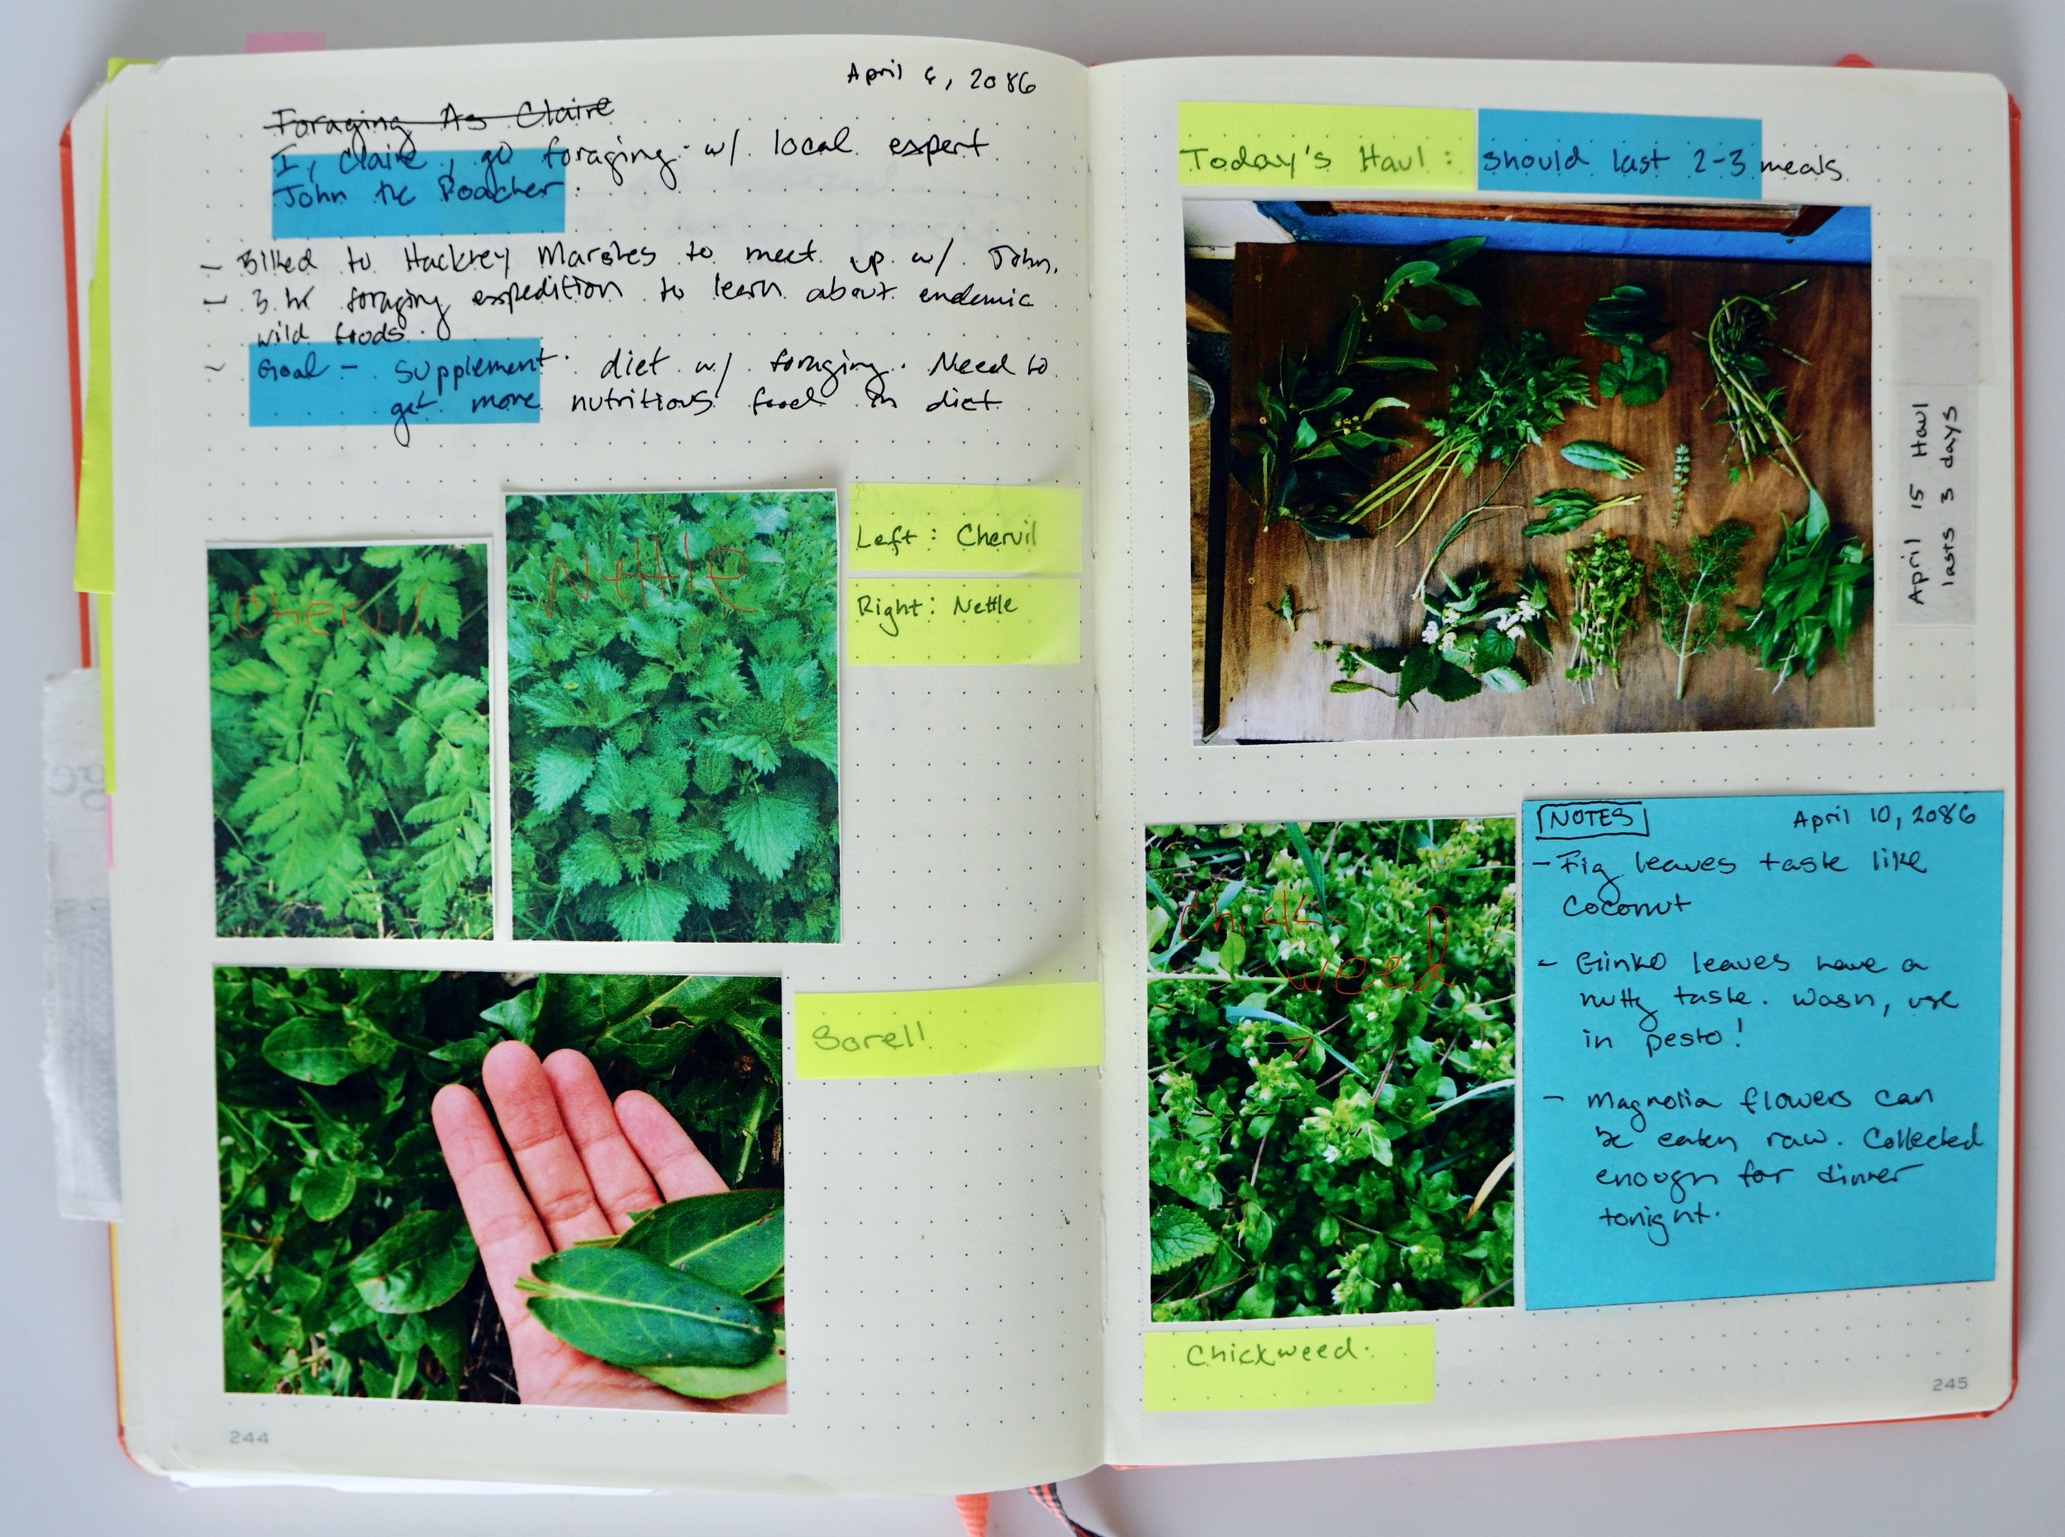 April 6, 2086
Foraging As Claire
I, Claire, go foraging w/ local expert
John the Poacher.
- Biked to Hackney Marshes to meet up w/ John.
- 3 hr foraging expedition to learn about endemic
wild foods.
- Goal - supplement diet w/ foraging. Need to
get more nutritious food in diet
Chervil
Nettle
Left: Chervil
Right: Nettle
Sorell
244
Today's Haul: should last 2-3 meals
April 15 Haul
lasts 3 days
Chick
weed
NOTES
April 10, 2086
- Fig leaves taste like
coconut
- Ginko leaves have a
nutty taste. Wash, use
in pesto!
- Magnolia flowers can
be eaten raw. Collected
enough for dinner
tonight.
Chickweed.
245